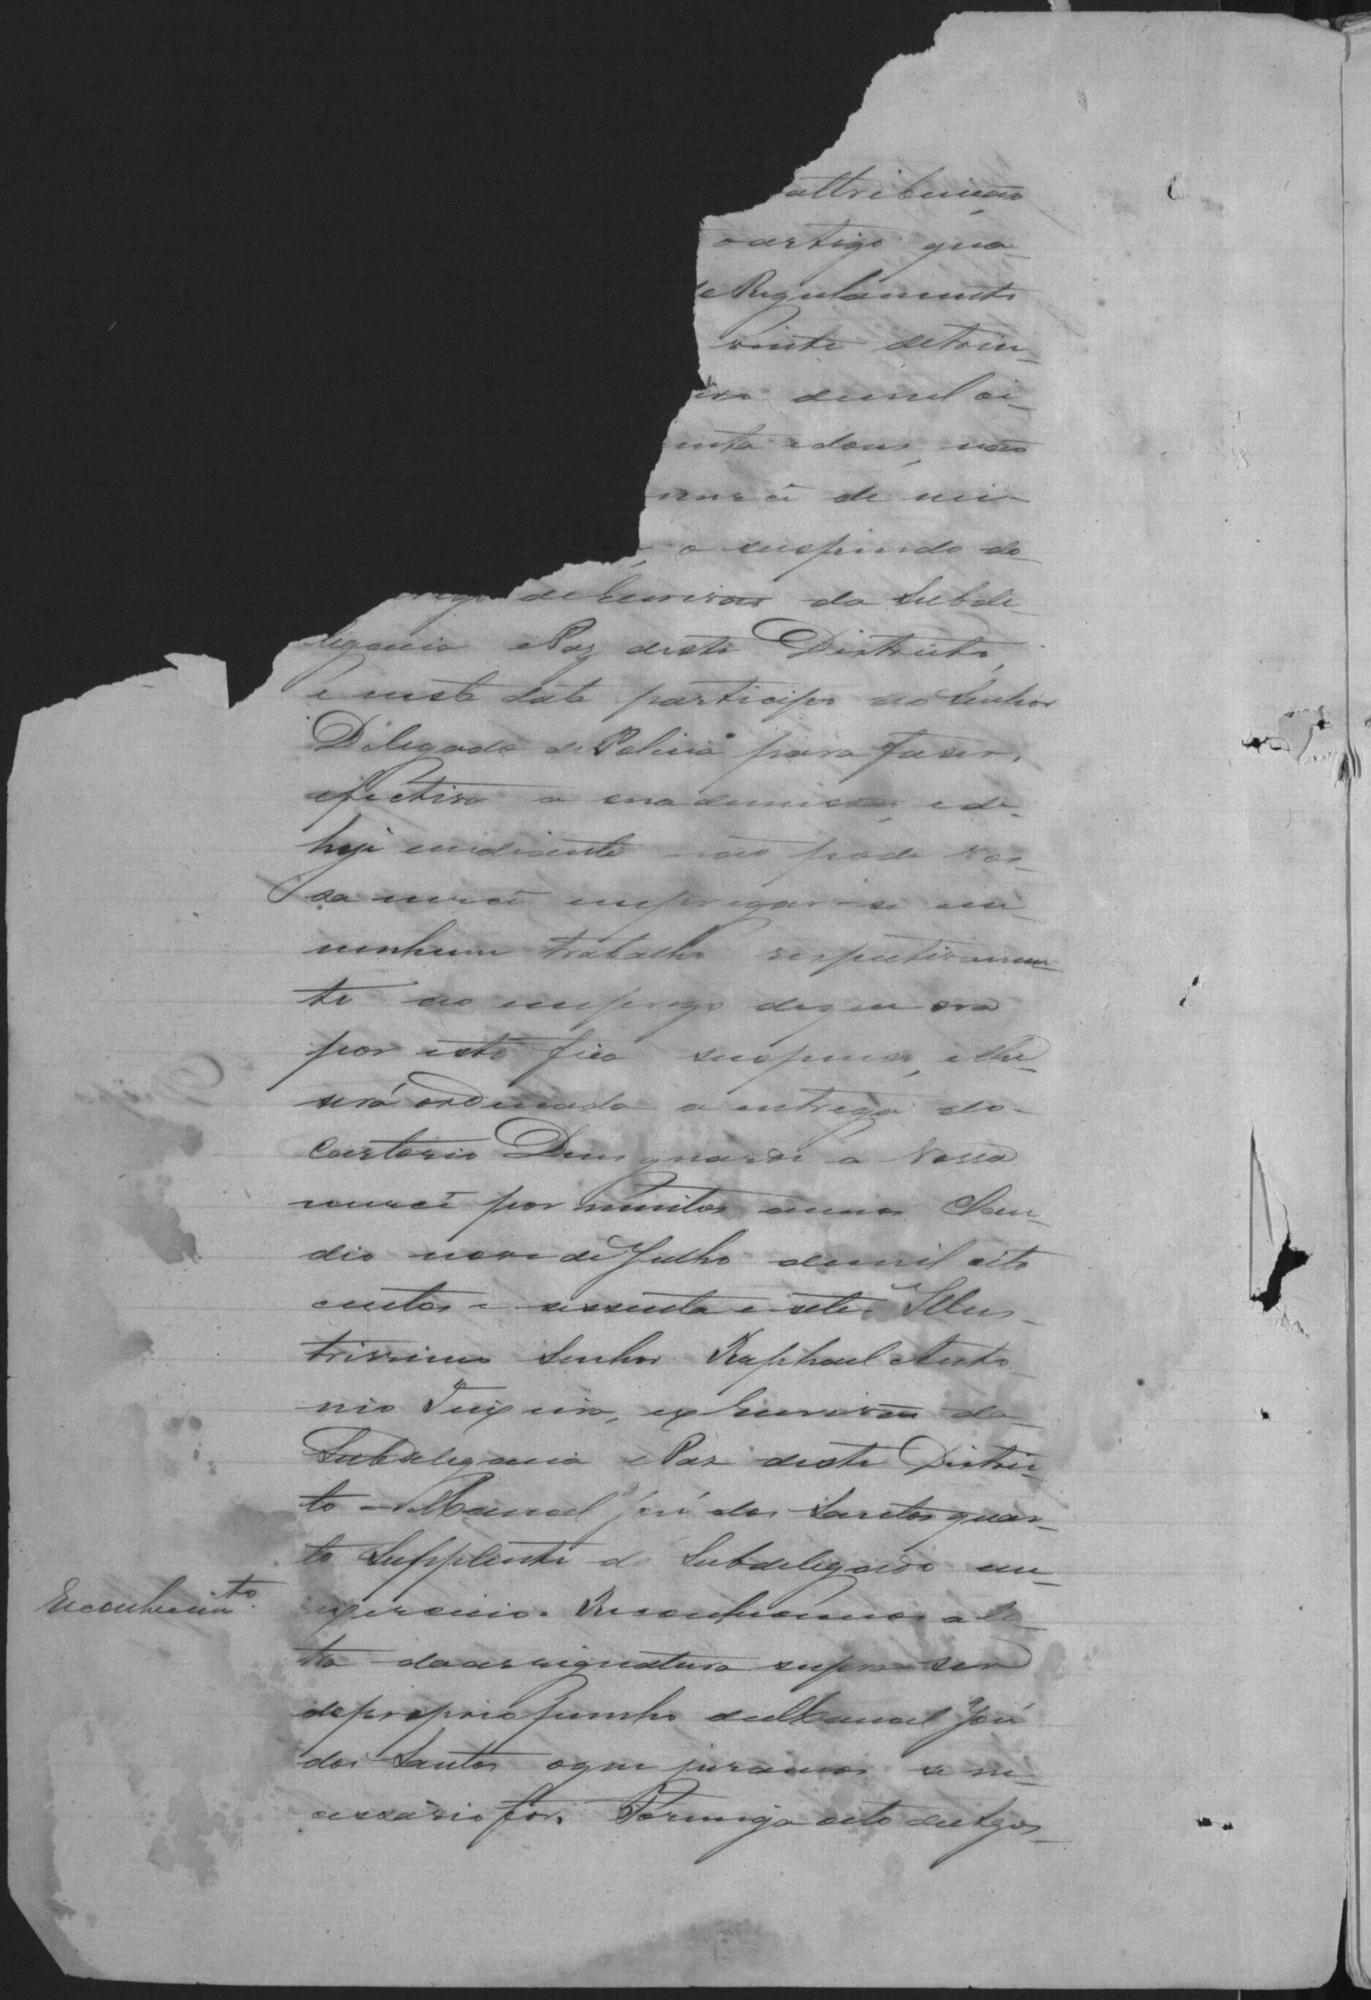 attribuição
o artigo qua-
de Regulamento
vinte de trin-
eiro de mil oi-
enta e dous, não
mercê de mi-
, o suspendo do
de Escrivão da Subde-
legacia e Paz deste Districto,
e nesta data participo ao Senhor
Delegado de Policia para faser
effectiva a sua demissão, e de
hoje endiante não pode vos-
sa mercê empregar-se em
nenhum trabalho respectivamen-
te ao emprego de que ora
por este fica suspenso, e lhe
será ordenada a entrega do
cartorio Deos guarde a Vossa
mercê por muitos annos
dio nove de Julho de mil oito
centos e sessenta e sete. Illus-
trissimo Senhor Raphael Anto
nio Teixeira, ex Escrivão da
Subdelegacia e Paz deste Distri-
to - Manoel José dos Santos quar-
to Supplente do Subdelegado em
Reconhecimto. exercicio. Reconhecemos a le-
tra da assignatura supra ser
de proprio punho de Manoel José
dos Santos o que juramos se ne-
cessario for. Formiga oito de Agos-